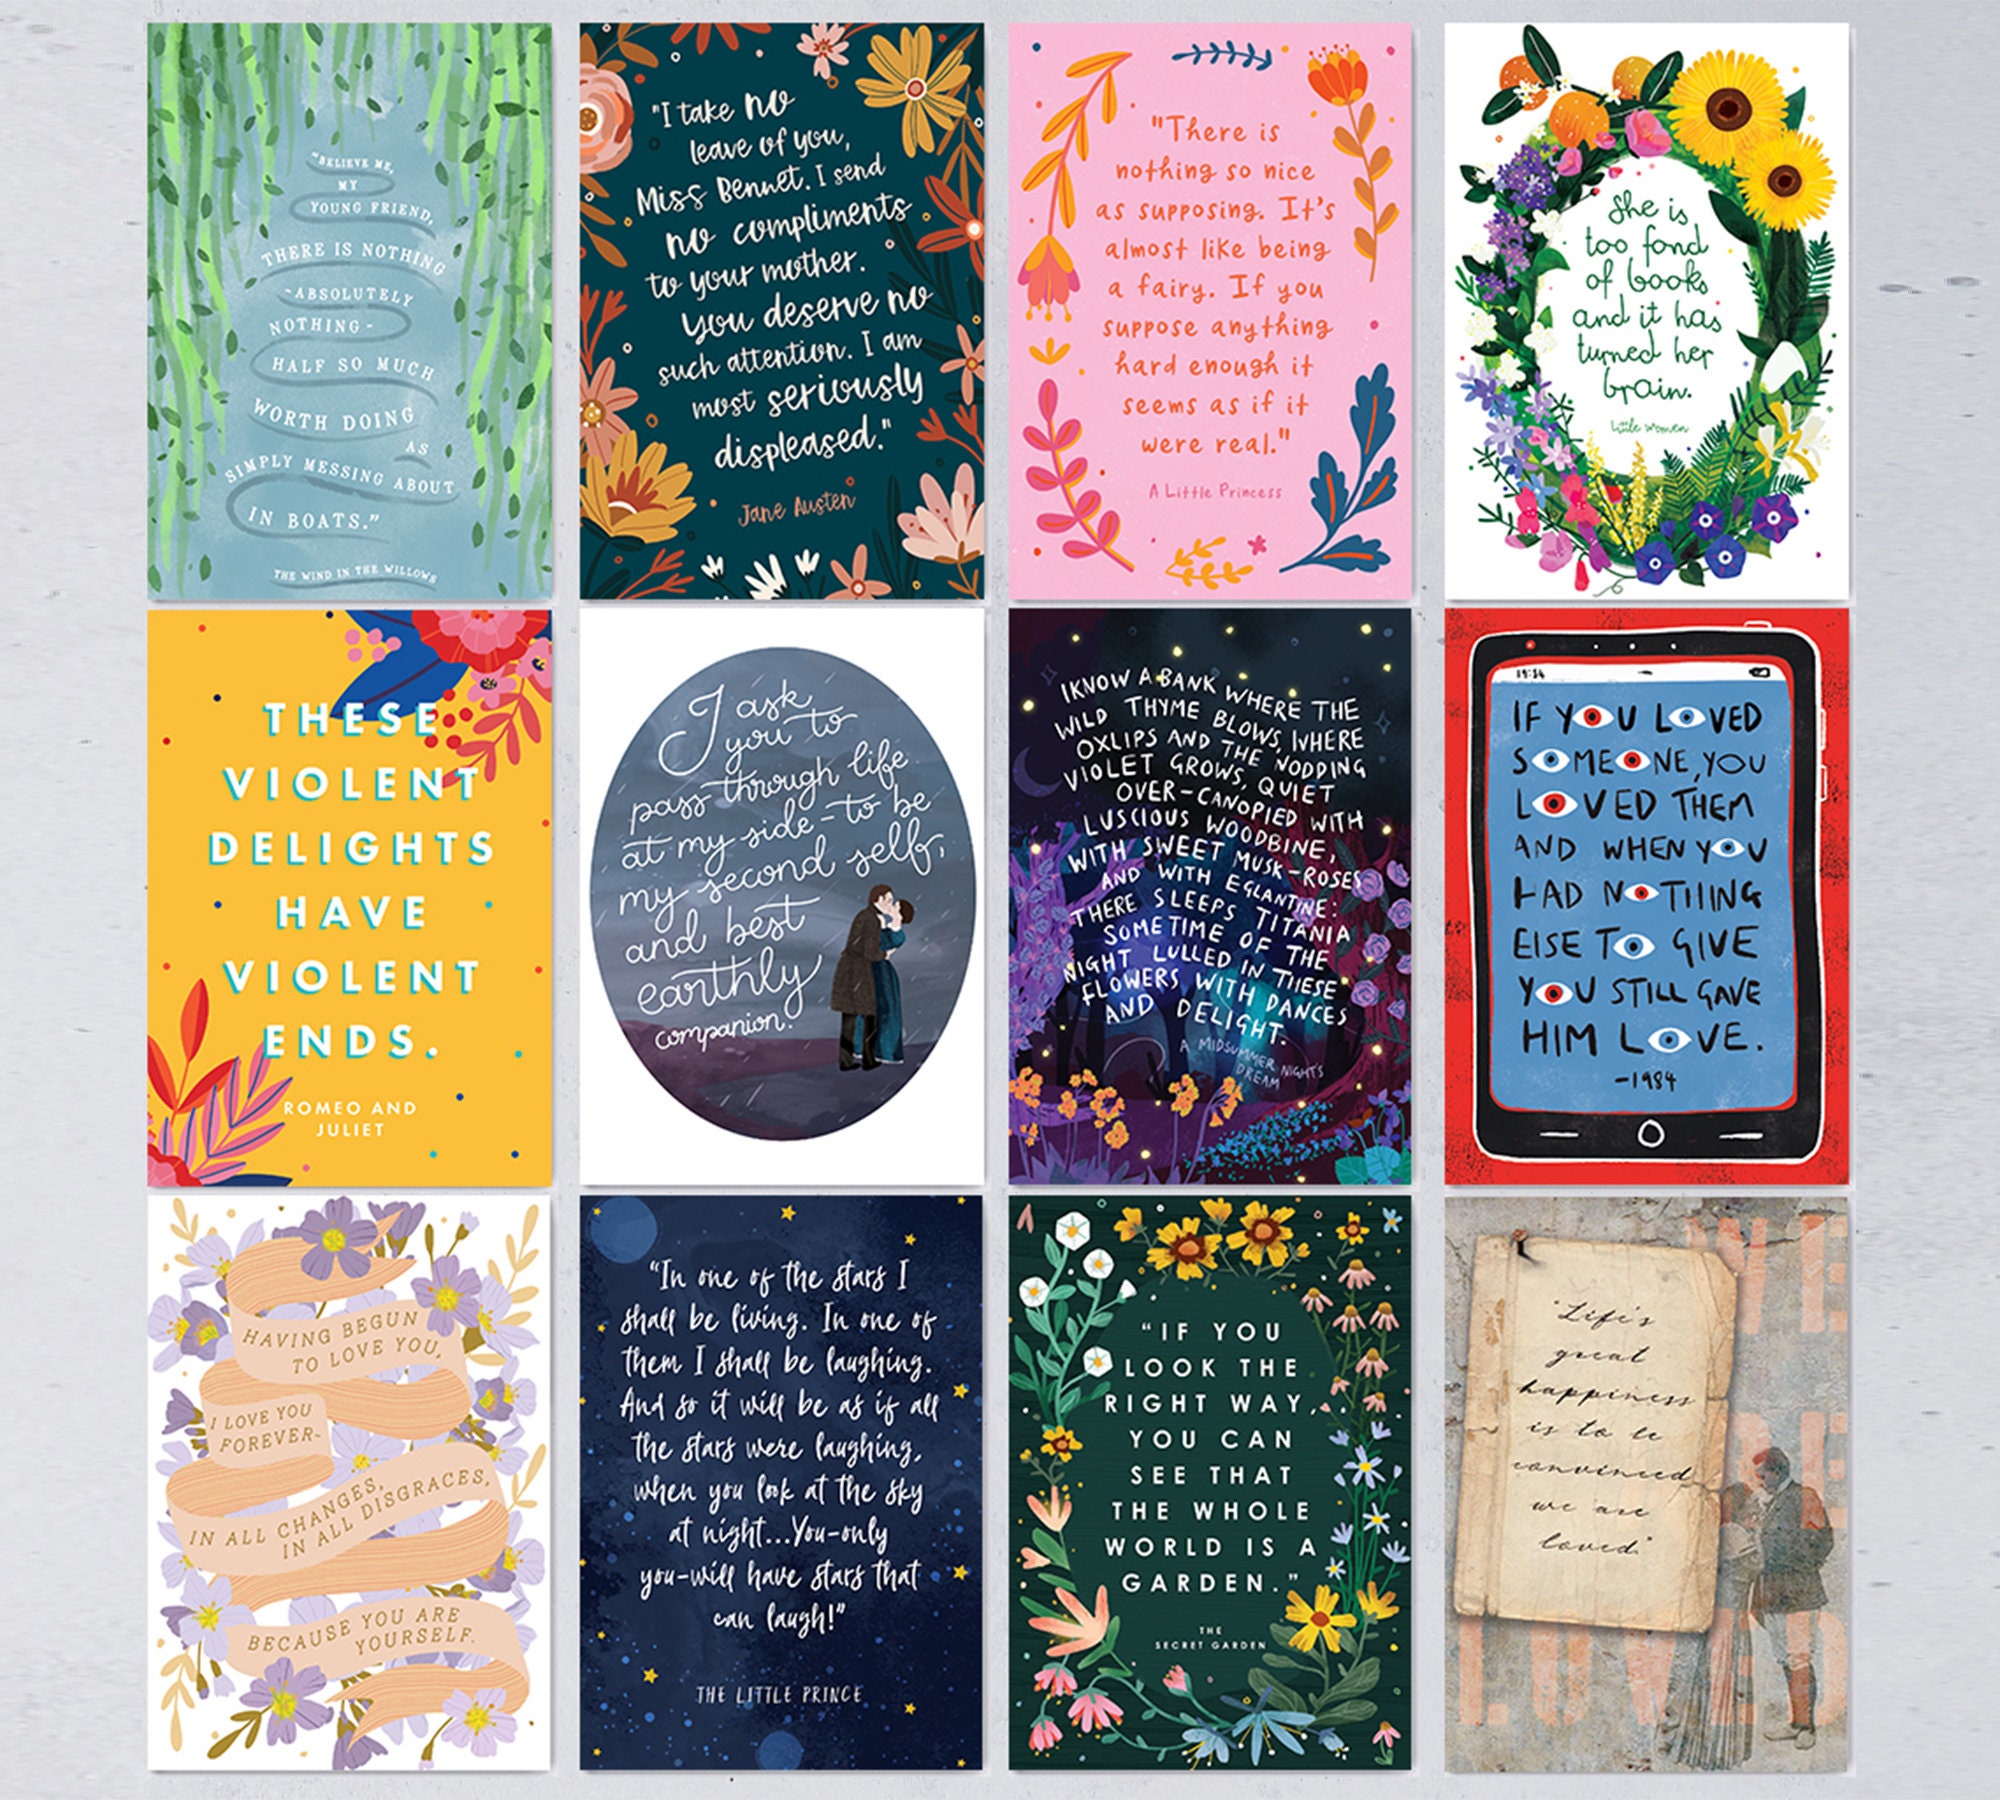 "BELIEVE ME,
MY
YOUNG FRIEND,
THERE IS NOTHING
-ABSOLUTELY
NOTHING-
HALF SO MUCH
WORTH DOING
AS
SIMPLY MESSING ABOUT
IN BOATS."
THE WIND IN THE WILLOWS
"I take no
leave of you,
Miss Bennet. I send
no compliments
to your mother.
You deserve no
such attention. I am
most seriously
displeased."
Jane Austen
"There is
nothing so nice
as supposing. It's
almost like being
a fairy. If you
suppose anything
hard enough it
seems as if it
were real."
A Little Princess
She is
too fond
of books
and it has
turned her
brain.
Little Women
THESE
VIOLENT
DELIGHTS
HAVE
VIOLENT
ENDS.
ROMEO AND
JULIET
I ask
you to
pass through life
at my side-to be
my second self,
and best
earthly
companion.
I KNOW A BANK WHERE THE
WILD THYME BLOWS, WHERE
OXLIPS AND THE NODDING
VIOLET GROWS, QUIET
OVER-CANOPIED WITH
LUSCIOUS WOODBINE,
WITH SWEET MUSK-ROSES
AND WITH EGLANTINE:
THERE SLEEPS TITANIA
SOMETIME OF THE
NIGHT LULLED IN THESE
FLOWERS WITH DANCES
AND DELIGHT.
A MIDSUMMER NIGHT'S
DREAM
19:54
IF YOU LOVED
SOMEONE, YOU
LOVED THEM
AND WHEN YOU
HAD NOTHING
ELSE TO GIVE
YOU STILL GAVE
HIM LOVE.
-1984
HAVING BEGUN
TO LOVE YOU,
I LOVE YOU
FOREVER-
IN ALL CHANGES,
IN ALL DISGRACES,
BECAUSE YOU ARE
YOURSELF.
"In one of the stars I
shall be living. In one of
them I shall be laughing.
And so it will be as if all
the stars were laughing,
when you look at the sky
at night...You-only
you-will have stars that
can laugh!"
THE LITTLE PRINCE
"IF YOU
LOOK THE
RIGHT WAY,
YOU CAN
SEE THAT
THE WHOLE
WORLD IS A
GARDEN."
THE
SECRET GARDEN
"Life's
great
happiness
is to be
convinced
we are
loved"
WE
LOVED